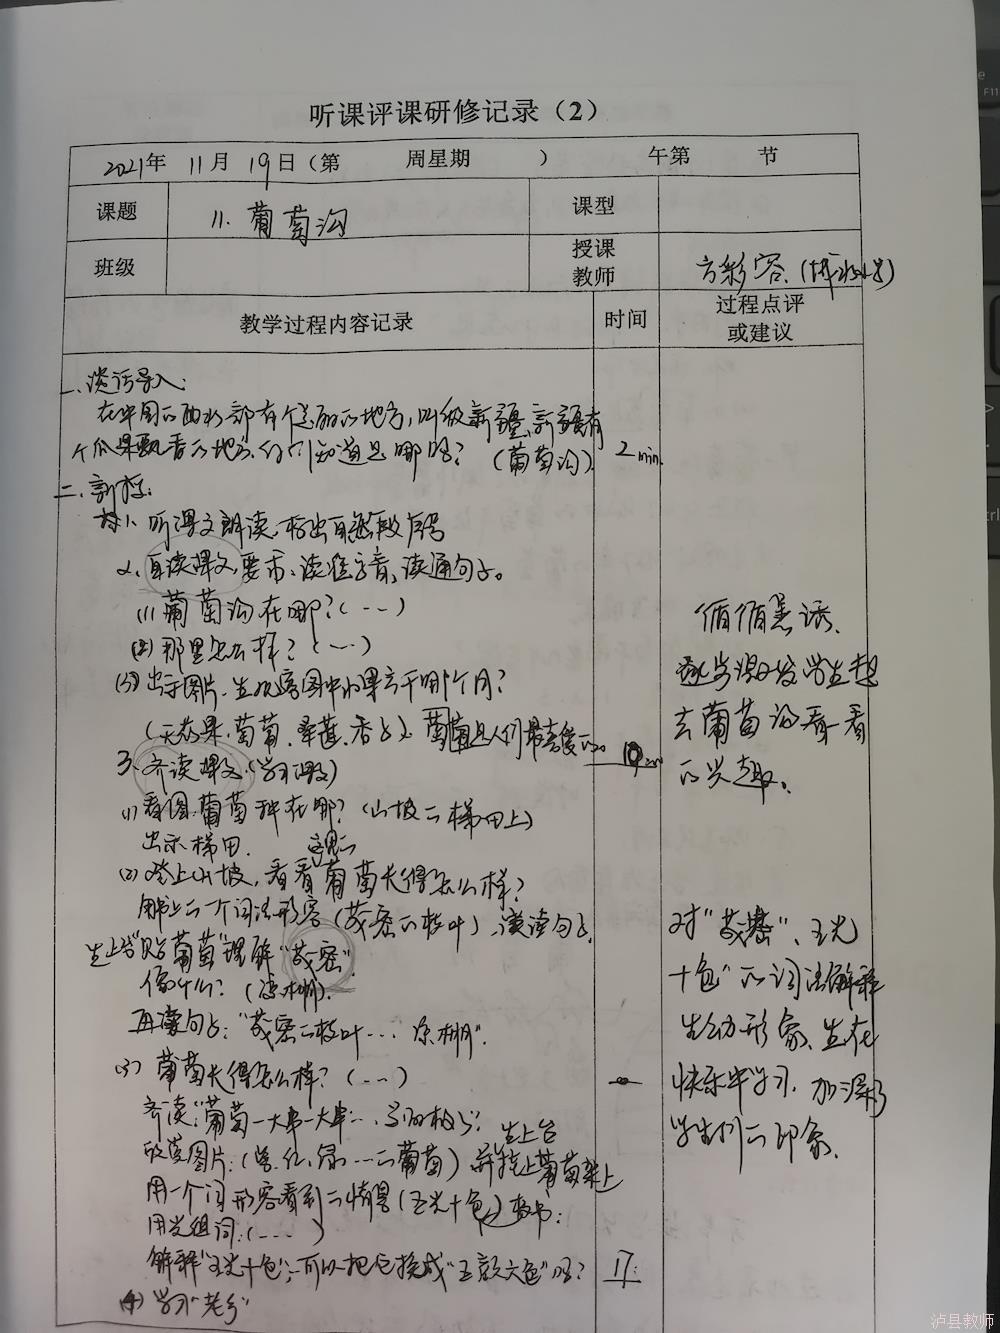 听课评课研修记录（2）
2021年 11月 19日（第 周星期 ） 午第 节
课题 11. 葡萄沟 课型
班级 授课教师 方彩容（
教学过程内容记录 时间 过程点评或建议
一、谈话导入：
在中国的西北部有个美丽的地方，叫做新疆，新疆有
个瓜果飘香的地方，你们知道是哪吗？（葡萄沟） 2min
二、新授：
1、听课文朗读，标出自然段序号
2、自读课文，要求：读准字音，读通句子。
(1) 葡萄沟在哪？（…）
(2) 那里怎么样？（…）
(3) 出示图片，生观察图中水果产于哪个月？
（无花果、葡萄、桑葚、香
葡萄是人们最喜爱的 10min
3、齐读课文（学习课文）
(1) 看图，葡萄种在哪？（山坡的梯田上）
出示梯田。
(2) 登上山坡，看看这里的葡萄长得怎么样？
用书上的一个词语形容（茂密的枝叶），读读句子。
生上台“贴葡萄”理解“茂密”
像什么？（凉棚）
再读句子：“茂密的枝叶… 凉棚”
(3) 葡萄长得怎么样？（…）
齐读：“葡萄一大串一大串…
图片：（ 红、绿…的葡萄）生上台 葡萄架上
用一个词形容看到的情景（五光十色）板书：
用光组词：（……）
解释“五光十色”，可以把它换成“五颜六色”吗？ 17
(4) 学习“老乡”
循循善诱，
逐步激发学生想
去葡萄沟看看
的兴趣。
对“茂密”、“五光
十色”的词语解释
生动形象，生在
快乐中学习，加深了
学生们的印象。
泸县教师